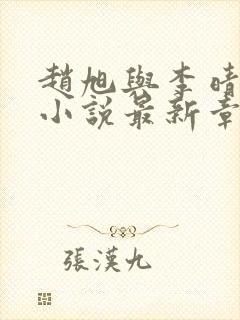 趙旭與李晴
小說最新章
張漢九